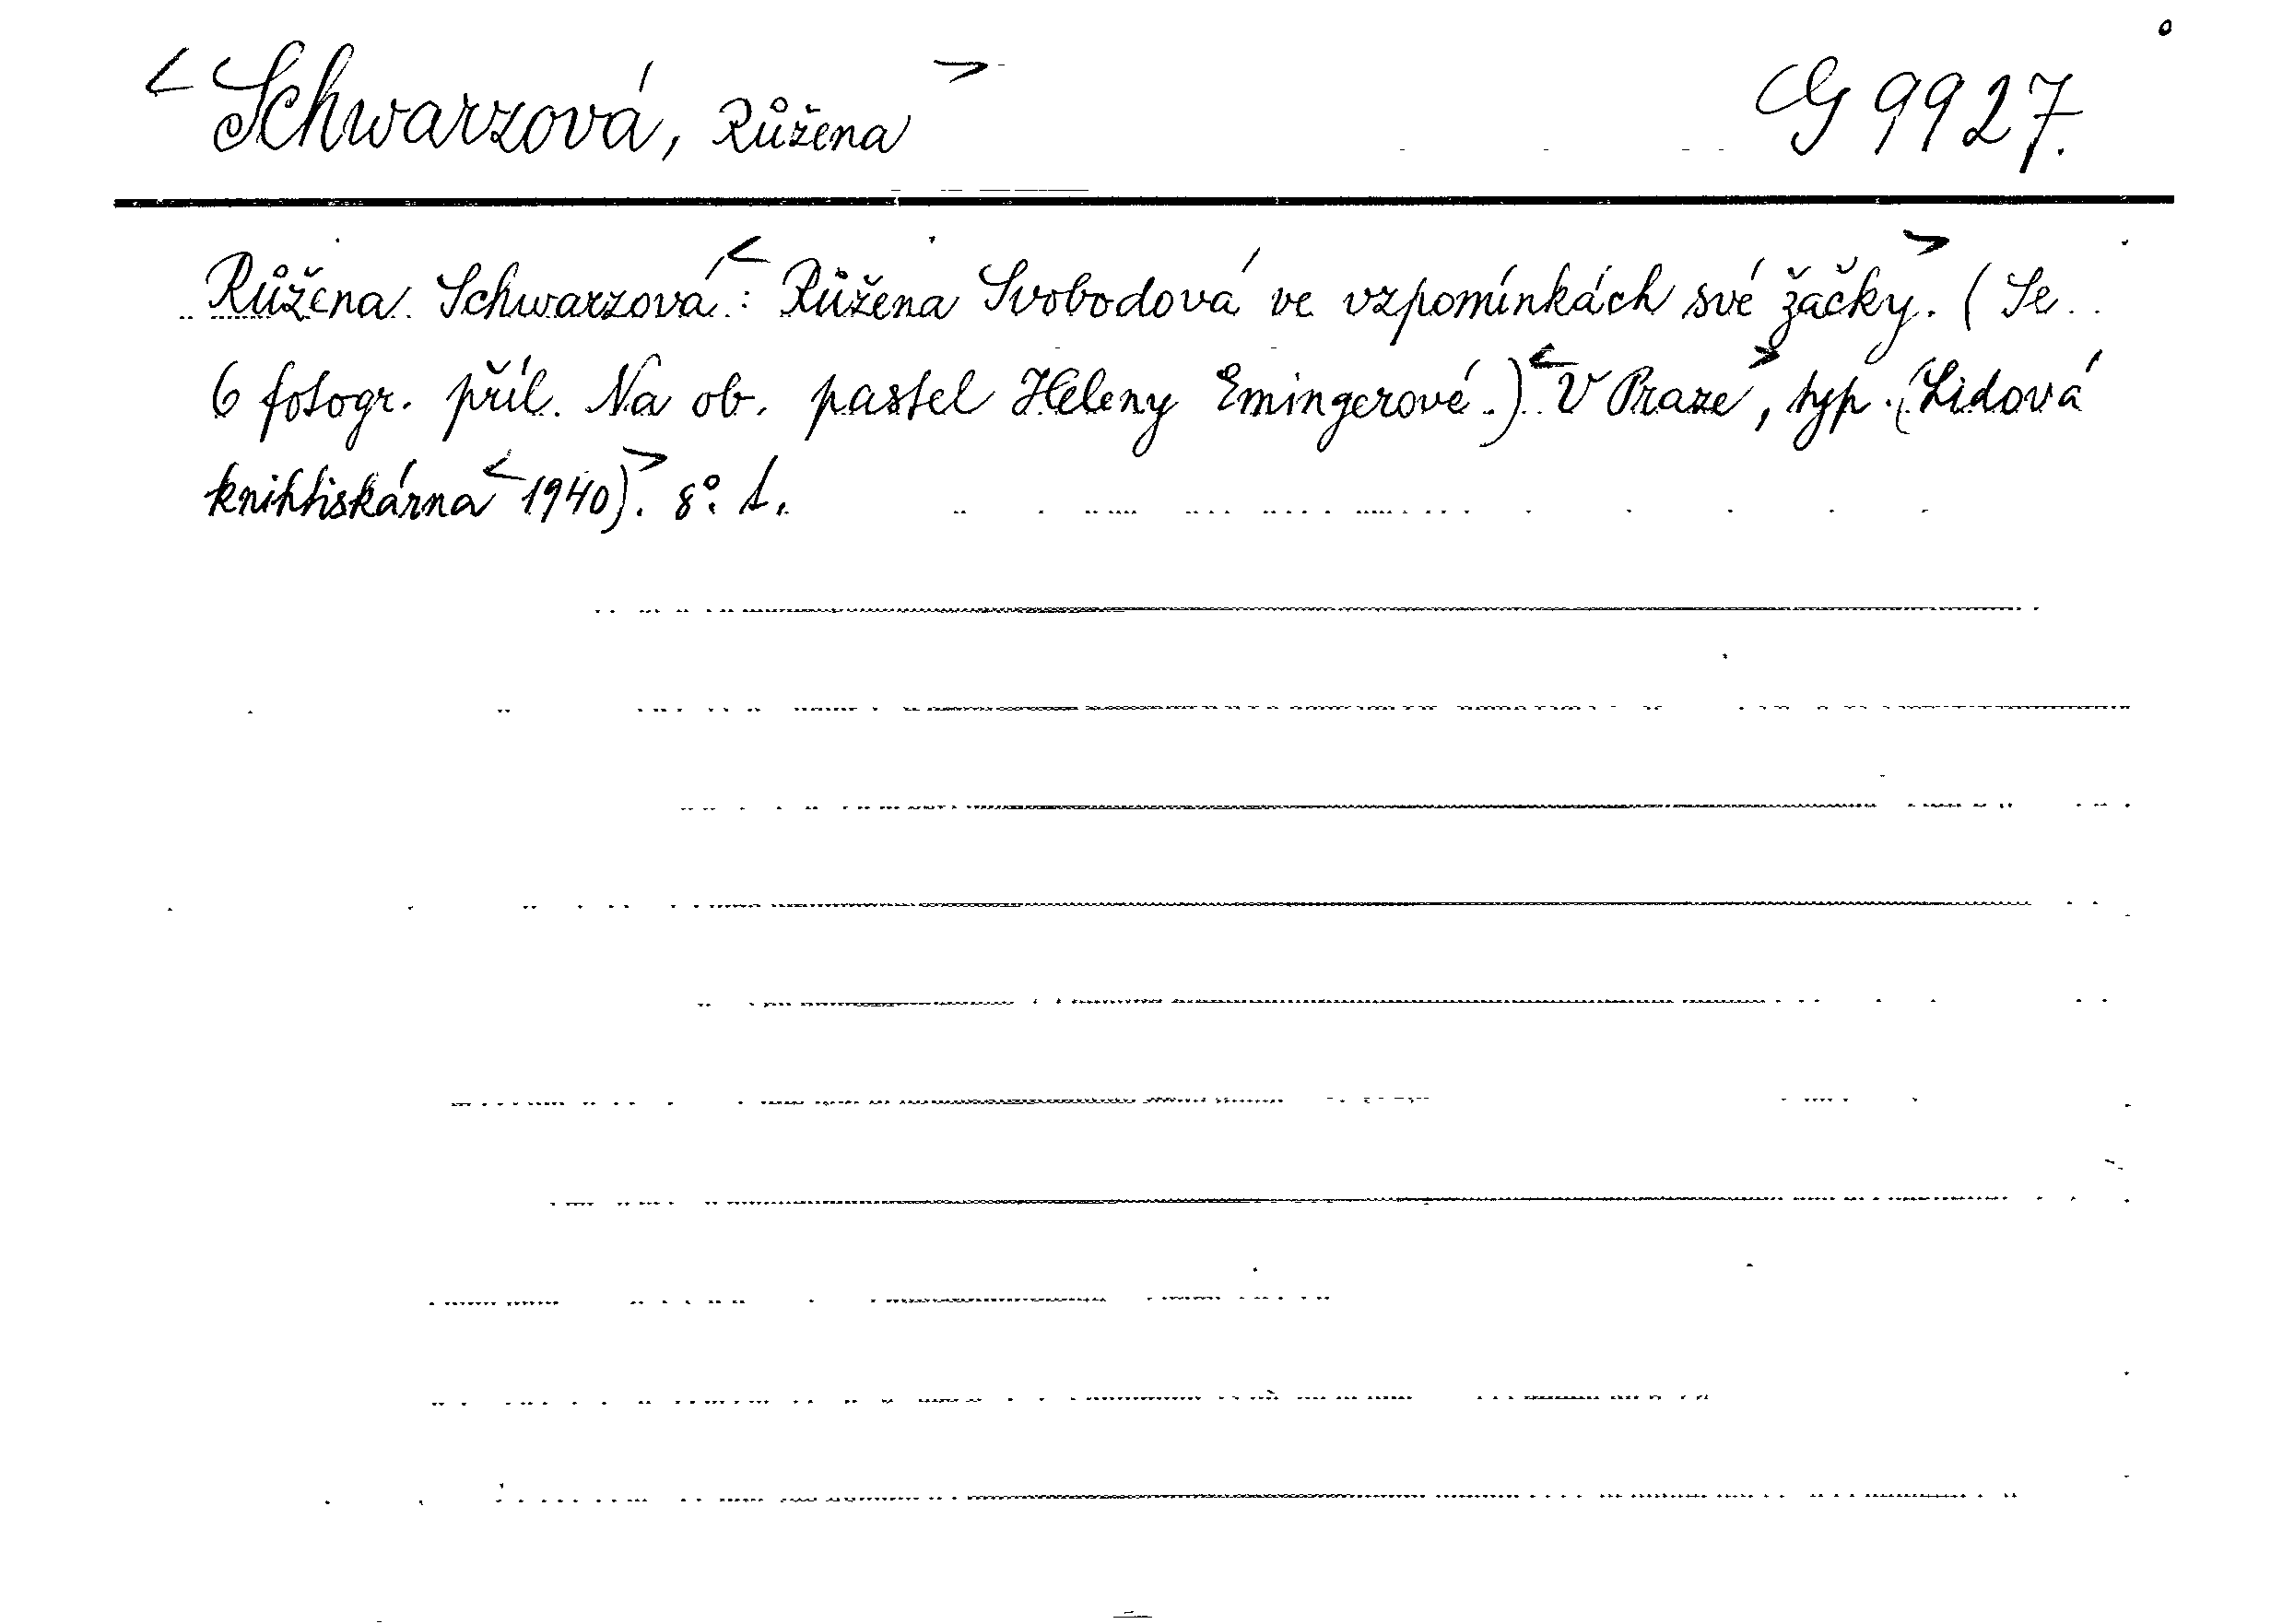 < Schwarzová, Růžena > G 9927.
Růžena Schwarzová: < Růžena Svobodová ve vzpomínkách své žačky. > (Se
6 fotogr. příl. Na ob. pastel Heleny Emingerové.) < V Praze >, typ. (Lidová
knihtiskárna < 1940). > 8°. 1.